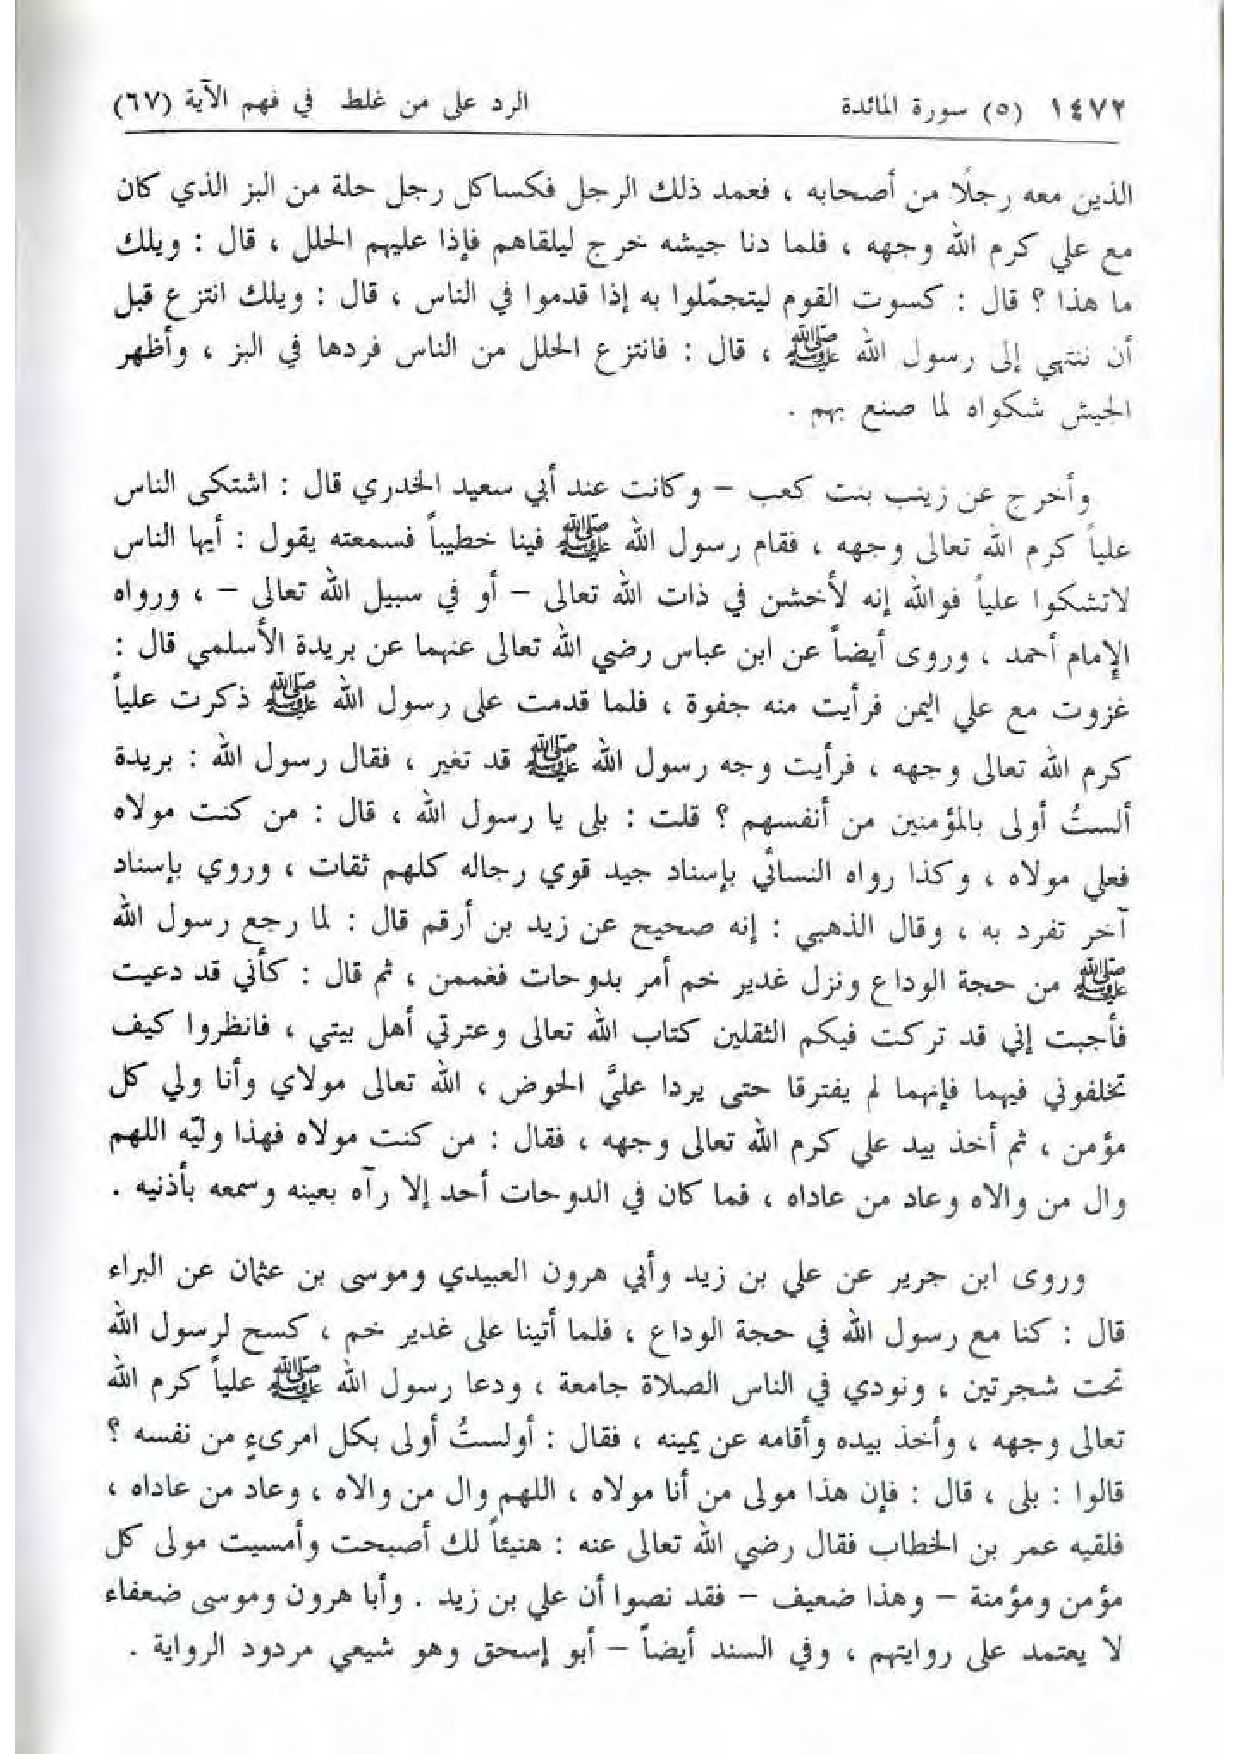 ١٤٧٢ (٥) سورة المائدة الرد على من غلط في فهم الآية (٦٧)
الذين معه رجلًا من أصحابه ، فعمد ذلك الرجل فكساكل رجل حلة من البز الذي كان
مع علي كرم الله وجهه ، فلما دنا جيشه خرج ليلقاهم فإذا عليهم الحلل ، قال : ويلك
ما هذا ؟ قال : كسوت القوم ليتجمّلوا به إذا قدموا في الناس ، قال : ويلك انتزع قبل
أن ننتهي إلى رسول الله ﷺ ، قال : فانتزع الحلل من الناس فردها في البز ، وأظهر
الجيش شكواه لما صنع بهم .
وأخرج عن زينب بنت كعب – وكانت عند أبي سعيد الخدري قال : اشتكى الناس
علياً كرم الله تعالى وجهه ، فقام رسول الله ﷺ فينا خطيباً فسمعته يقول : أيها الناس
لاتشكوا علياً فوالله إنه لأخشن في ذات الله تعالى – أو في سبيل الله تعالى – ، ورواه
الإمام أحمد ، وروى أيضاً عن ابن عباس رضي الله تعالى عنهما عن بريدة الأسلمي قال :
غزوت مع علي اليمن فرأيت منه جفوة ، فلما قدمت على رسول الله ﷺ ذكرت علياً
كرم الله تعالى وجهه ، فرأيت وجه رسول الله ﷺ قد تغير ، فقال رسول الله : بريدة
ألستُ أولى بالمؤمنين من أنفسهم ؟ قلت : بلى يا رسول الله ، قال : من كنت مولاه
فعلي مولاه ، وكذا رواه النسائي بإسناد جيد قوي رجاله كلهم ثقات ، وروي بإسناد
آخر تفرد به ، وقال الذهبي : إنه صحيح عن زيد بن أرقم قال : لما رجع رسول الله
ﷺ من حجة الوداع ونزل غدير خم أمر بدوحات فغممن ، ثم قال : كأني قد دعيت
فأجبت إني قد تركت فيكم الثقلين كتاب الله تعالى وعترتي أهل بيتي ، فانظروا كيف
تخلفوني فيهما فإنهما لم يفترقا حتى يردا عليَّ الحوض ، الله تعالى مولاي وأنا ولي كل
مؤمن ، ثم أخذ بيد علي كرم الله تعالى وجهه ، فقال : من كنت مولاه فهذا وليّه اللهم
وال من والاه وعاد من عاداه ، فما كان في الدوحات أحد إلا رآه بعينه وسمعه بأذنيه .
وروى ابن جرير عن علي بن زيد وأبي هرون العبيدي وموسى بن عثمان عن البراء
قال : كنا مع رسول الله في حجة الوداع ، فلما أتينا على غدير خم ، كسح لرسول الله
تحت شجرتين ، ونودي في الناس الصلاة جامعة ، ودعا رسول الله ﷺ علياً كرم الله
تعالى وجهه ، وأخذ بيده وأقامه عن يمينه ، فقال : أولستُ أولى بكل امرىءٍ من نفسه ؟
قالوا : بلى ، قال : فإن هذا مولى من أنا مولاه ، اللهم وال من والاه ، وعاد من عاداه ،
فلقيه عمر بن الخطاب فقال رضي الله تعالى عنه : هنيئاً لك أصبحت وأمسيت مولى كل
مؤمن ومؤمنة – وهذا ضعيف – فقد نصوا أن علي بن زيد . وأبا هرون وموسى ضعفاء
لا يعتمد على روايتهم ، وفي السند أيضاً – أبو إسحق وهو شيعي مردود الرواية .